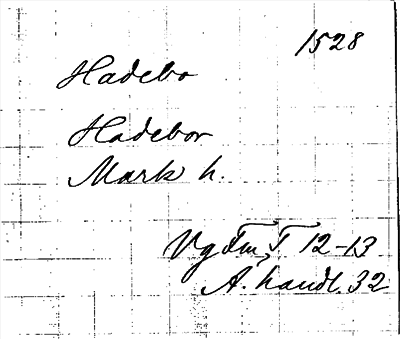 1528
Hadebo
Hadebor
Mark h.
Vg Fm T. 12-13
A. handl. 32